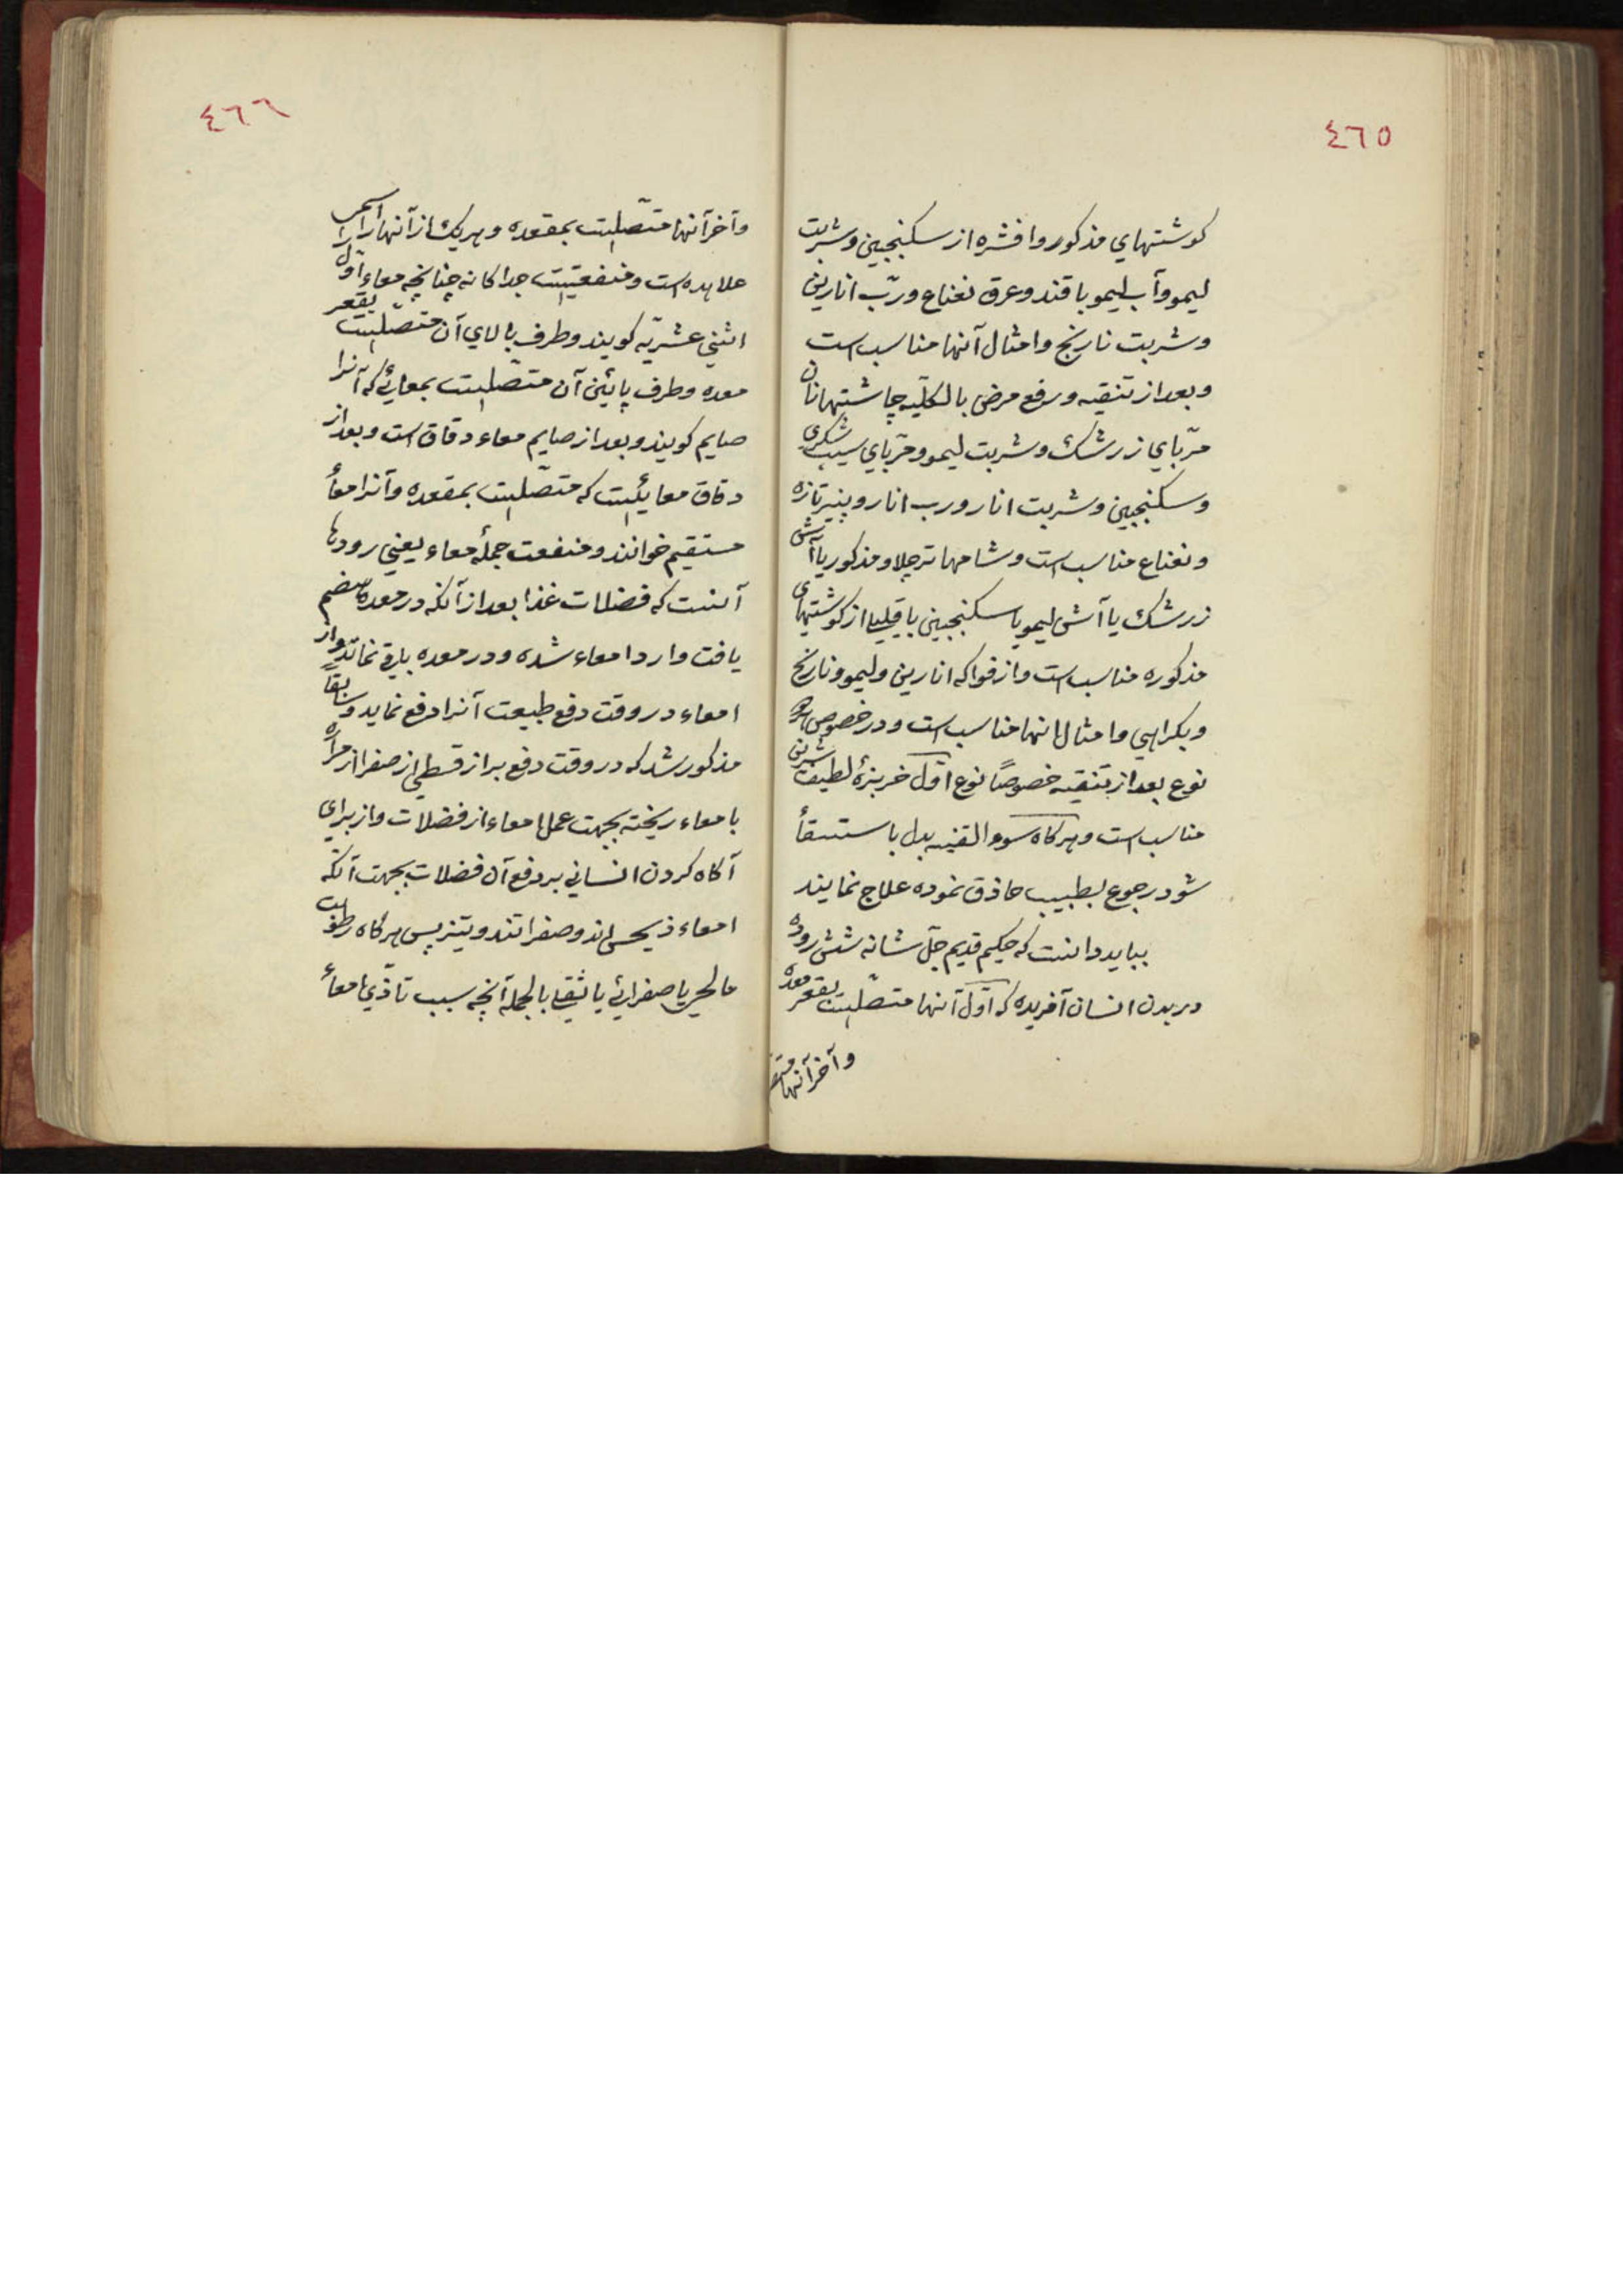 ٤٦٥
کوشتهاي مذکور وافشره از سکنجبین وشربت
لیمو وآب لیمو با قند وعرق نعناع وربّ انارین
وشربت نارنج وامثال آنها مناسب است
وبعد از تنقیه ورفع مرض بالکلّیه چاشتها نان
مربّاي زرشک وشربت لیمو ومربّاي سیب شکري
وسکنجبین وشربت انار ورب انار وپنیر تازه
ونعناع مناسب است وشامها ترچلاو مذکور یا آش
زرشک یا آش لیمو یا سکنجبین یا قلیا از کوشتهاي
مذکوره مناسب است واز فواکه انارین ولیمو ونارنج
وبکراهي وامثال انها مناسب است ودر خصوص هر
نوع بعد از تنقیه خصوصًا نوع اوّل خربزهٔ لطیف شیرین
مناسب است وهرکاه سوء القنیه بدل باستسقأ
شود رجوع بطبیب حاذق نموده علاج نمایند
بباید دانست که حکیم قدیم جلّ شانه شش روده
در بدن انسان آفریده که اوّل آنها متصّلست بقعر معده
وآخر آنها متصّ
٤٦٦
وآخر آنها متصّلست بمقعده وهریک از آنها را اسمي
علاهده است ومنفعتیست جداکانه چنانچه معاء اوّل را
اثني عشریّه کویند وطرف بالاي آن متصّلست بقعر
معده وطرف پائین آن متصّلست بمعائي که آنرا
صایم کویند وبعد از صایم معاء دقاق است وبعد از
دقاق معائیست که متصّلست بمقعده وآنرا معأ
مستقیم خوانند ومنفعت جملهٔ معاء یعني رودها
آنست که فضلات غذا بعد از آنکه در معده هضم
یافت وارد امعاء شده ودر معده باقي نماند واز
امعاء در وقت دفع طبیعت آنرا دفع نماید وسابقاً
مذکور شد که در وقت دفع براز قسطي از صفرا از مراره
بامعاء ریخته بجهت عمل امعاء از فضلات واز براي
آکاه کردن انساني بر دفع آن فضلات بجهت آنکه
امعاء ذیحس اند وصفرا تند وتیز پس هرکاه رطوبت
مالحي یا صفرائي یا ثقلي بالجمله آنچه سبب تأذّي امعأ